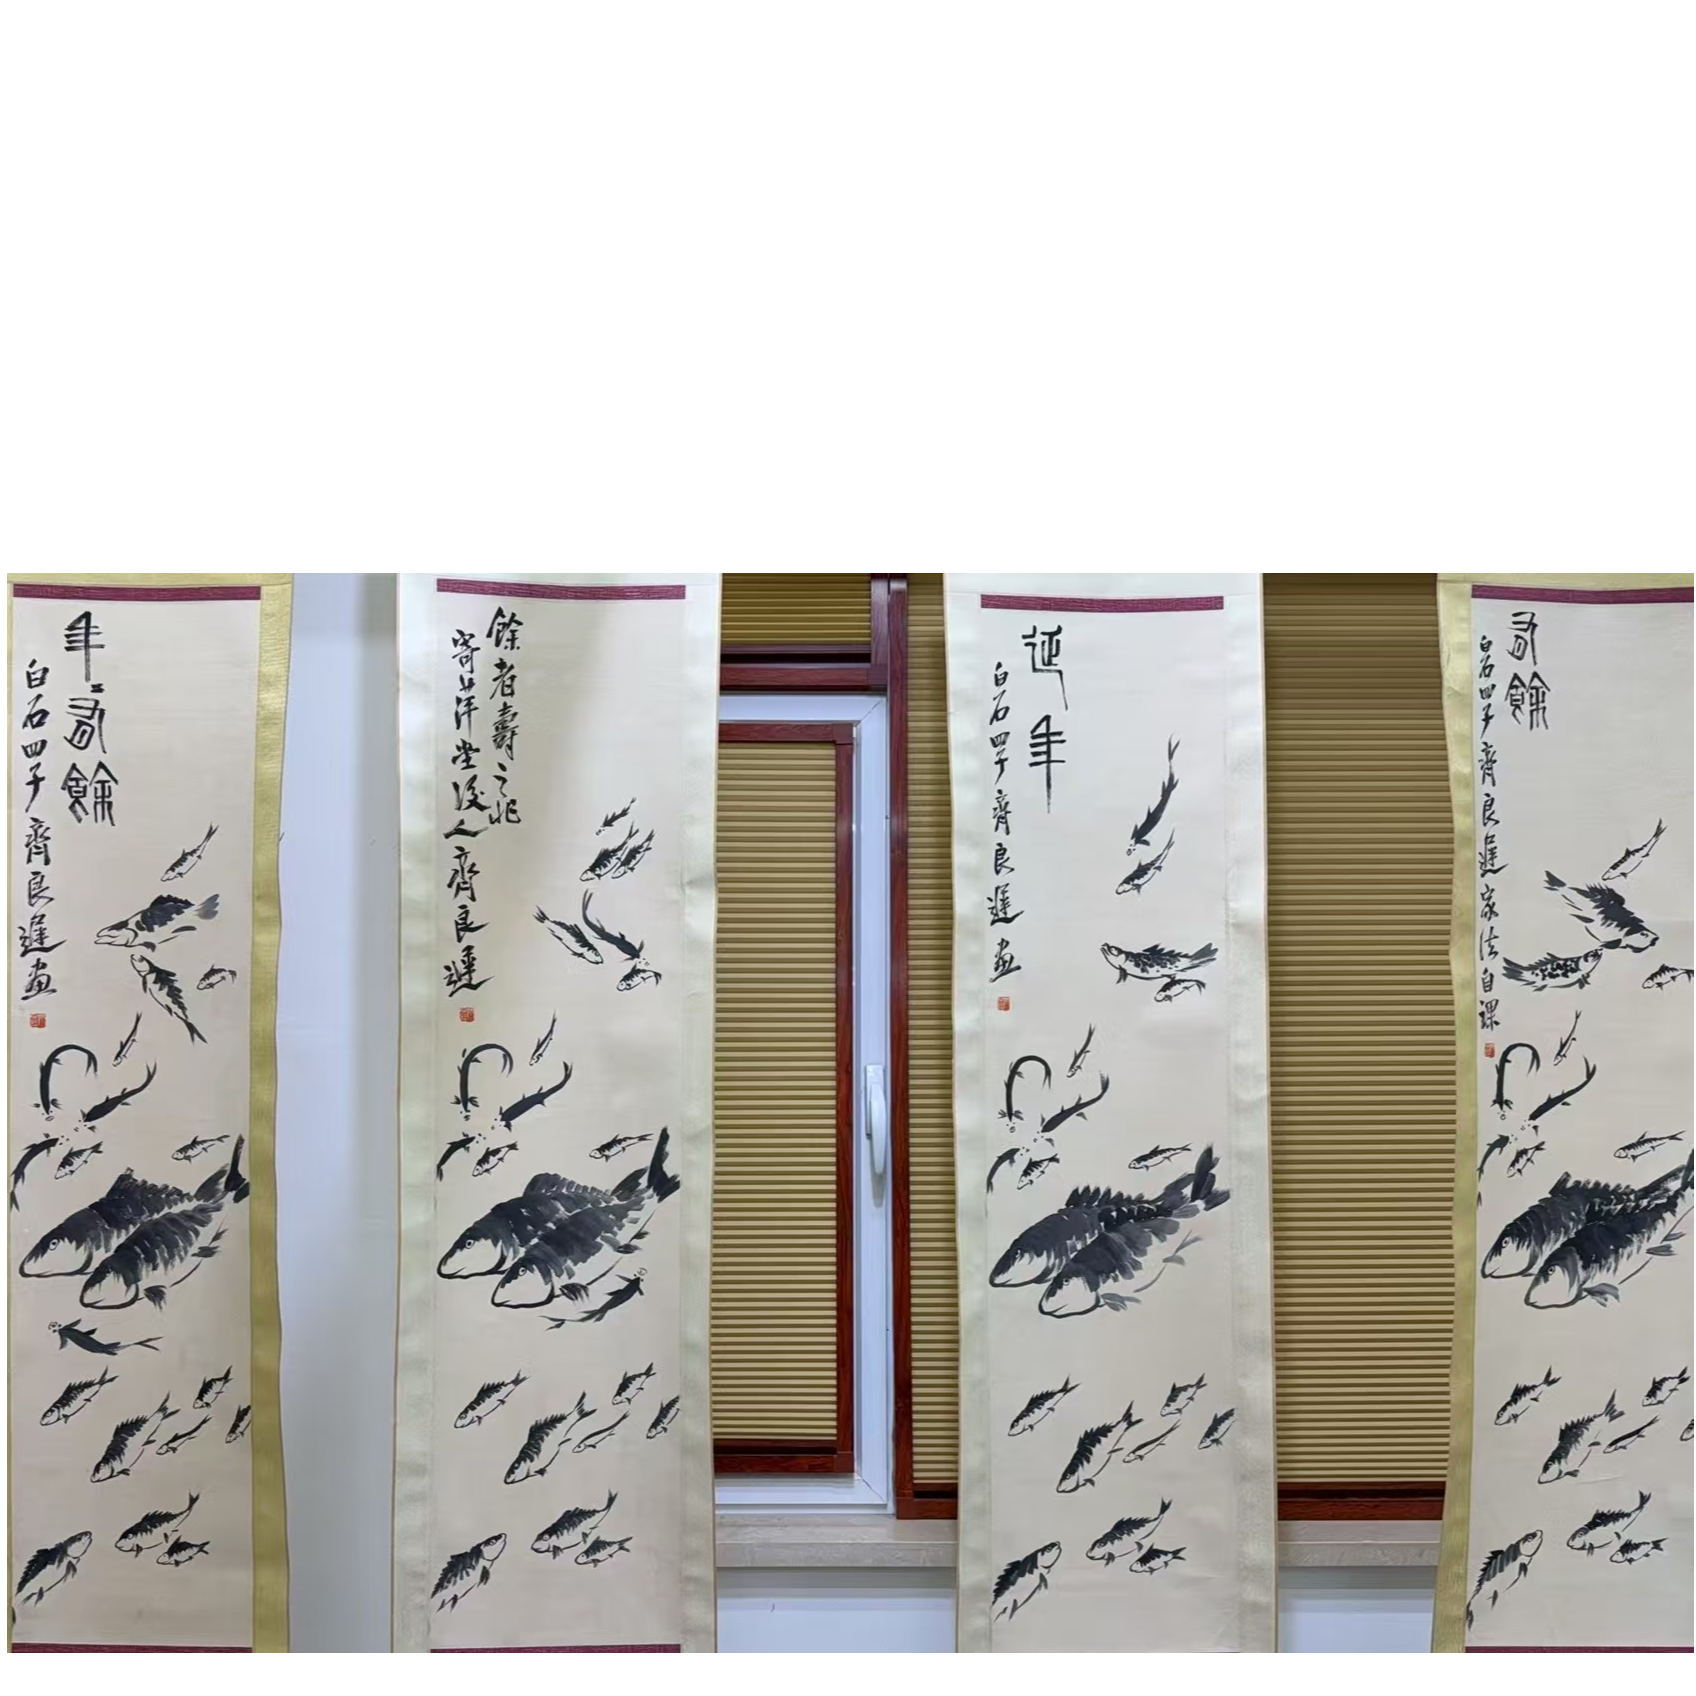 年〻有餘
白石四子齊良遲畫
餘者壽之兆
寄萍堂後人齊良遲
延年
白石四子齊良遲畫
有餘
白石四子齊良遲家法自課